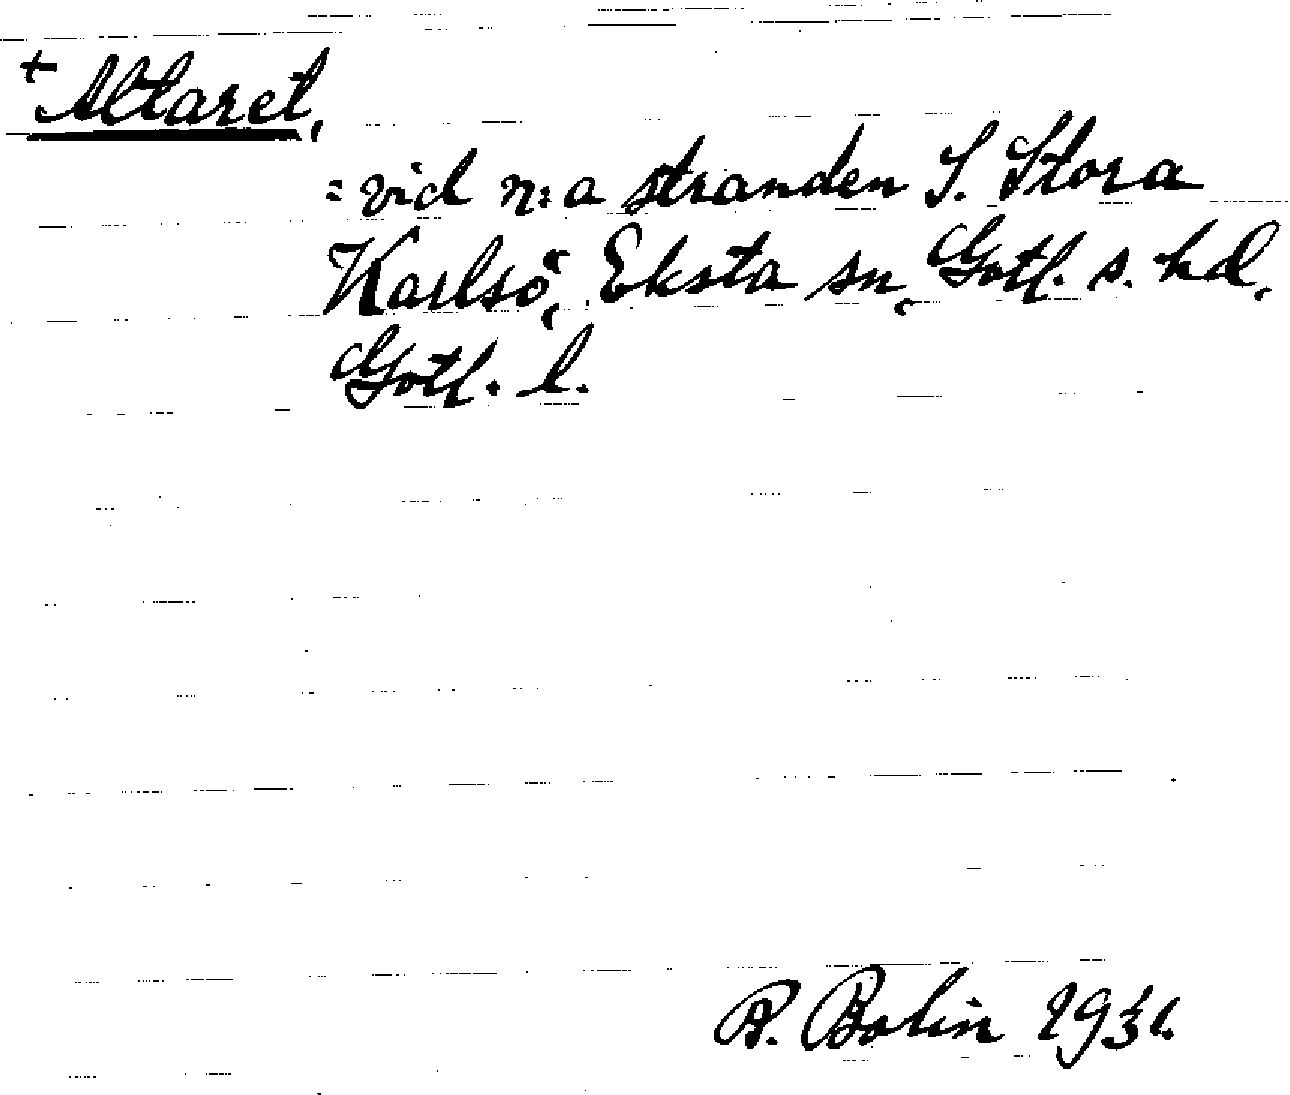 + Altaret,
= vid n:a stranden S. Stora
Karlsö, Eksta sn, Gotl. s. hd,
Gotl. l.
B. Bolin 1931.